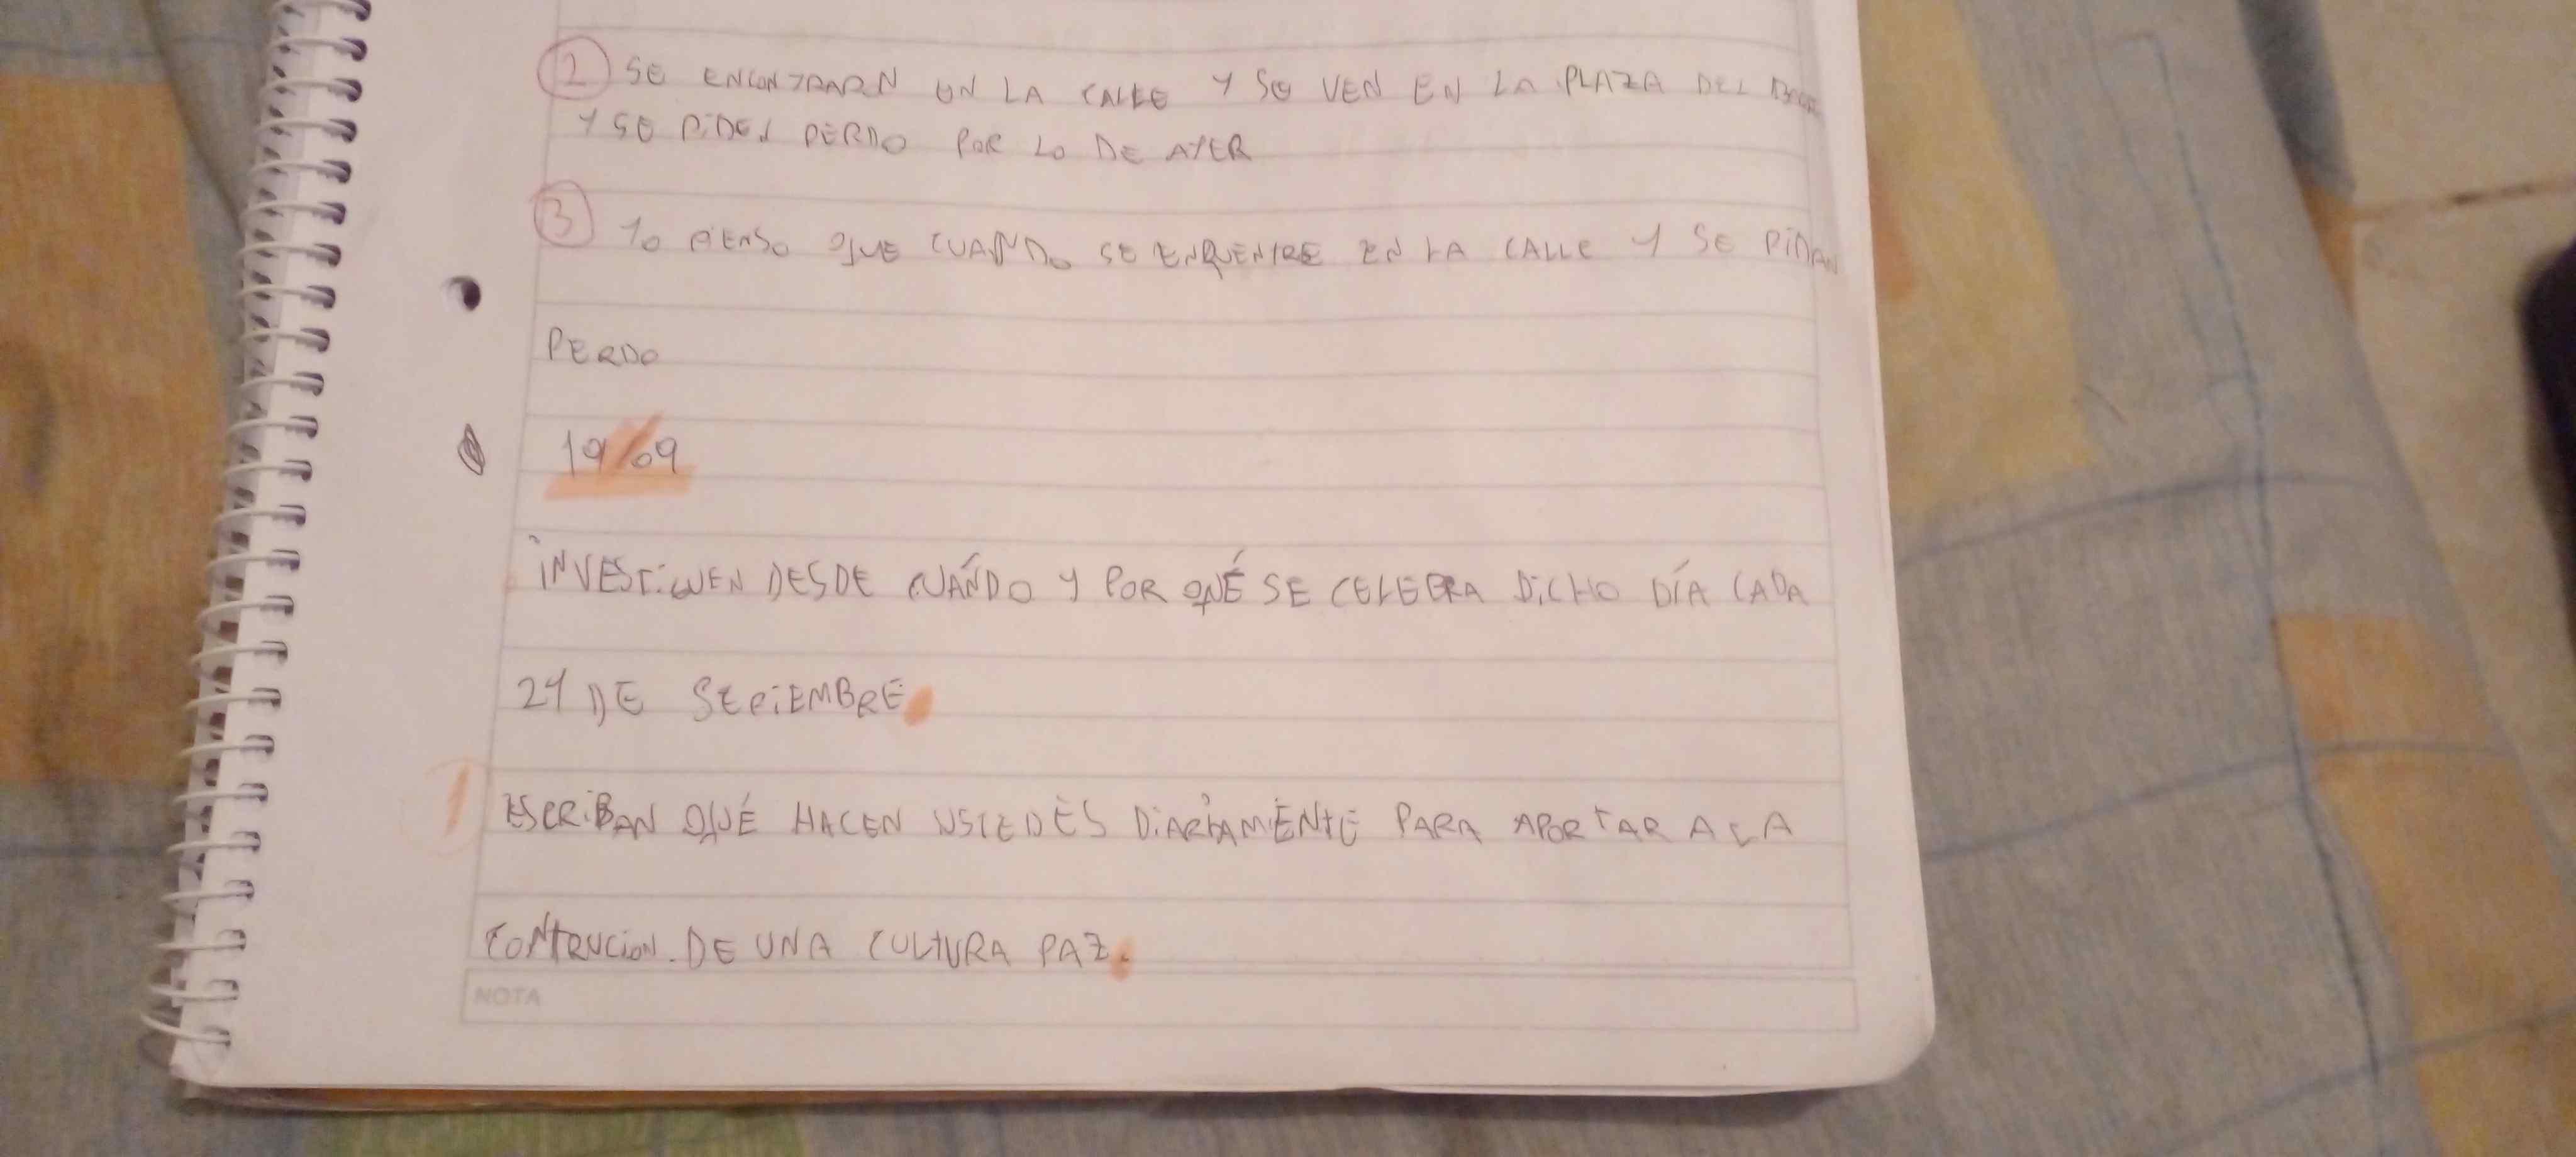 2 SE ENCONTRARN EN LA CALLE Y SE VEN EN LA PLAZA DEL
Y SE PIDEN PERDO POR LO DE AYER
3 YO PIENSO QUE CUANDO SE ENQUENTRE EN LA CALLE Y SE PIDAN
PERDO
19/09
INVESTIGUEN DESDE CUÁNDO Y POR QUÉ SE CELEBRA DICHO DÍA CADA
21 DE SEPTIEMBRE.
1 ESCRIBAN QUÉ HACEN USTEDES DIARIAMENTE PARA APORTAR A LA
CONTRUCION. DE UNA CULTURA PAZ.
NOTA